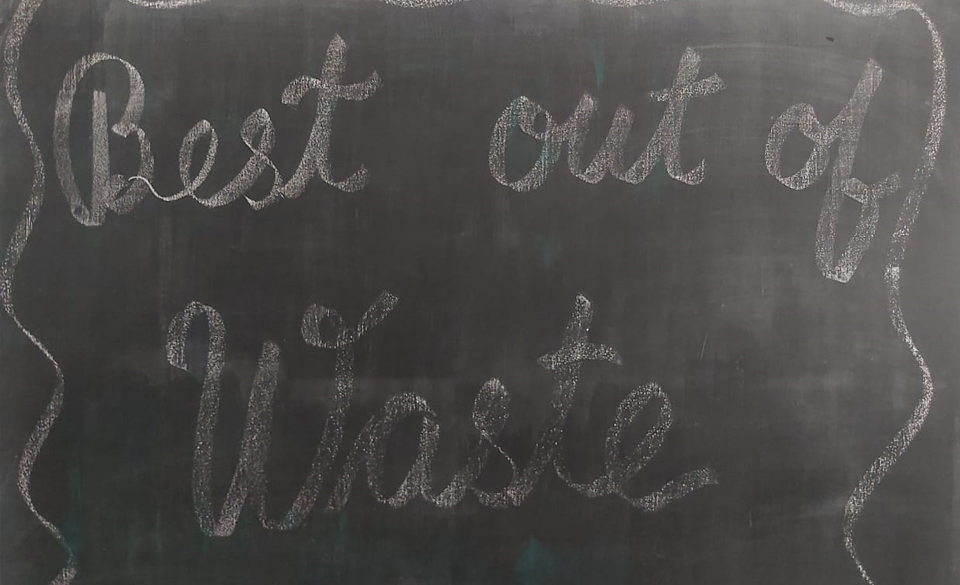 Best out of
Waste